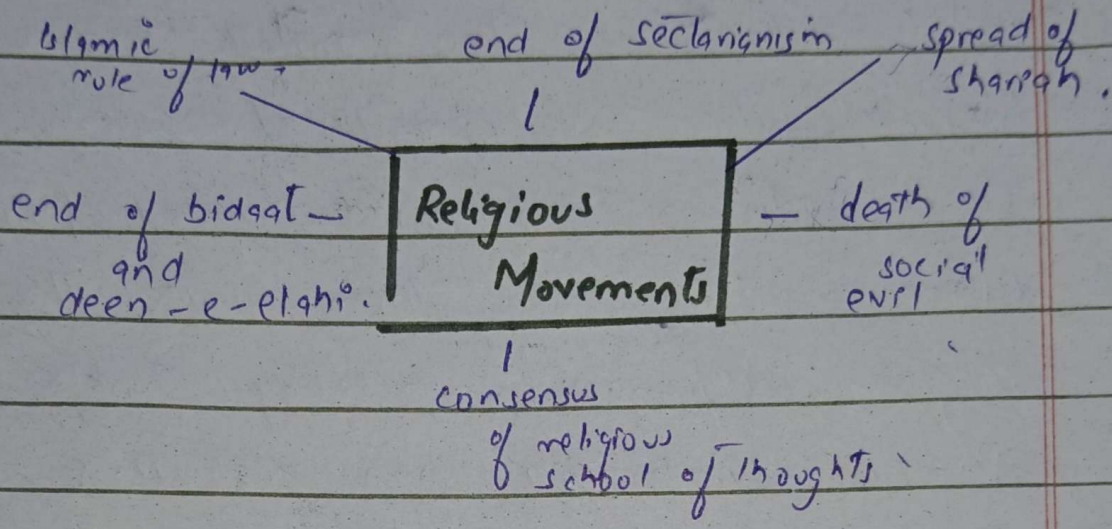 Islamic
rule of law
end of sectarianism
spread of
shariah.
end of bidaat
and
deen-e-elahi.
Religious
Movements
death of
social
evil
consensus
of religious
school of thoughts